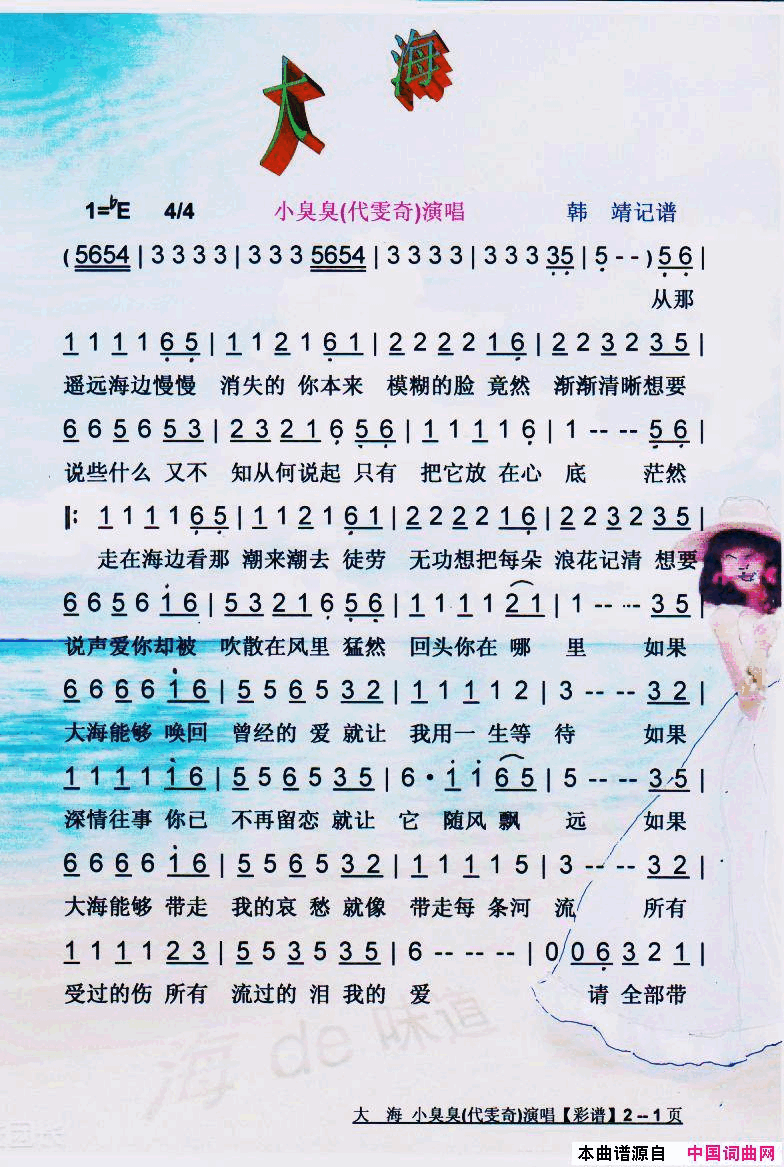 大 海
1=♭E 4/4 小臭臭(代雯奇)演唱 韩 靖记谱
( 5654 | 3 3 3 3 | 3 3 3 5654 | 3 3 3 3 | 3 3 3 35 | 5 - - ) 5 6 |
从那
1 1 1 1 6 5 | 1 1 2 1 6 1 | 2 2 2 2 1 6 | 2 2 3 2 3 5 |
遥远海边慢慢 消失的 你本来 模糊的脸 竟然 渐渐清晰想要
6 6 5 6 5 5 3 | 2 3 2 1 6 5 6 | 1 1 1 1 6 | 1 -- -- 5 6 |
说些什么 又不 知从何说起 只有 把它放 在心 底 茫然
‖: 1 1 1 1 6 5 | 1 1 2 1 6 1 | 2 2 2 2 1 6 | 2 2 3 2 3 5 |
走在海边看那 潮来潮去 徒劳 无功想把每朵 浪花记清 想要
6 6 5 6 1 6 | 5 3 2 1 6 5 6 | 1 1 1 1 2 1 | 1 -- -- 3 5 |
说声爱你却被 吹散在风里 猛然 回头你在 哪 里 如果
6 6 6 6 1 6 | 5 5 6 5 3 2 | 1 1 1 1 2 | 3 -- -- 3 5 |
大海能够 唤回 曾经的 爱 就让 我用一 生等 待 如果
1 1 1 1 1 6 | 5 5 6 5 3 5 | 6 · 1 1 6 5 | 5 -- -- 3 5 |
深情往事 你已 不再留恋 就让 它 随风 飘 远 如果
6 6 6 6 1 6 | 5 5 6 5 3 2 | 1 1 1 1 5 | 3 -- -- 3 2 |
大海能够 带走 我的哀 愁 就像 带走每 条河 流 所有
1 1 1 1 2 3 | 5 5 3 5 3 5 | 6 -- -- -- | 0 0 6 3 2 1 |
受过的伤 所有 流过的 泪 我的 爱 请 全部带
海 de 味道
大 海 小臭臭(代雯奇)演唱【彩谱】2 -- 1 页
本曲谱源自 中国词曲网